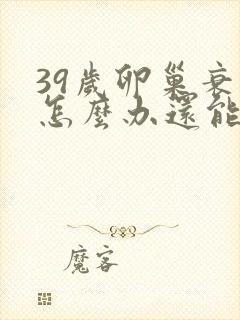 39歲卵巢衰
怎麼办還能
魔客